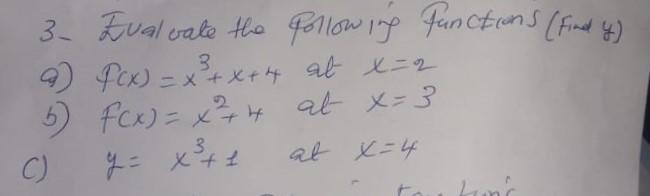 3- Evaluate the following functions (Find y)
a) f(x) = x³ + x + 4 at x = 2
b) f(x) = x² + 4 at x = 3
c) y = x³ + 1 at x = 4